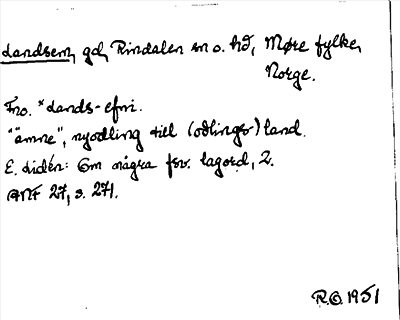 Landsem, gd, Rindalen sn o. hd, Møre fylke,
Norge.
Fno. *lands-efni.
"ämne", nyodling till (odlings-)land.
E. Lidén: Om några fsv. lagord, 2.
ANF 27, s. 271.
R.O. 1951